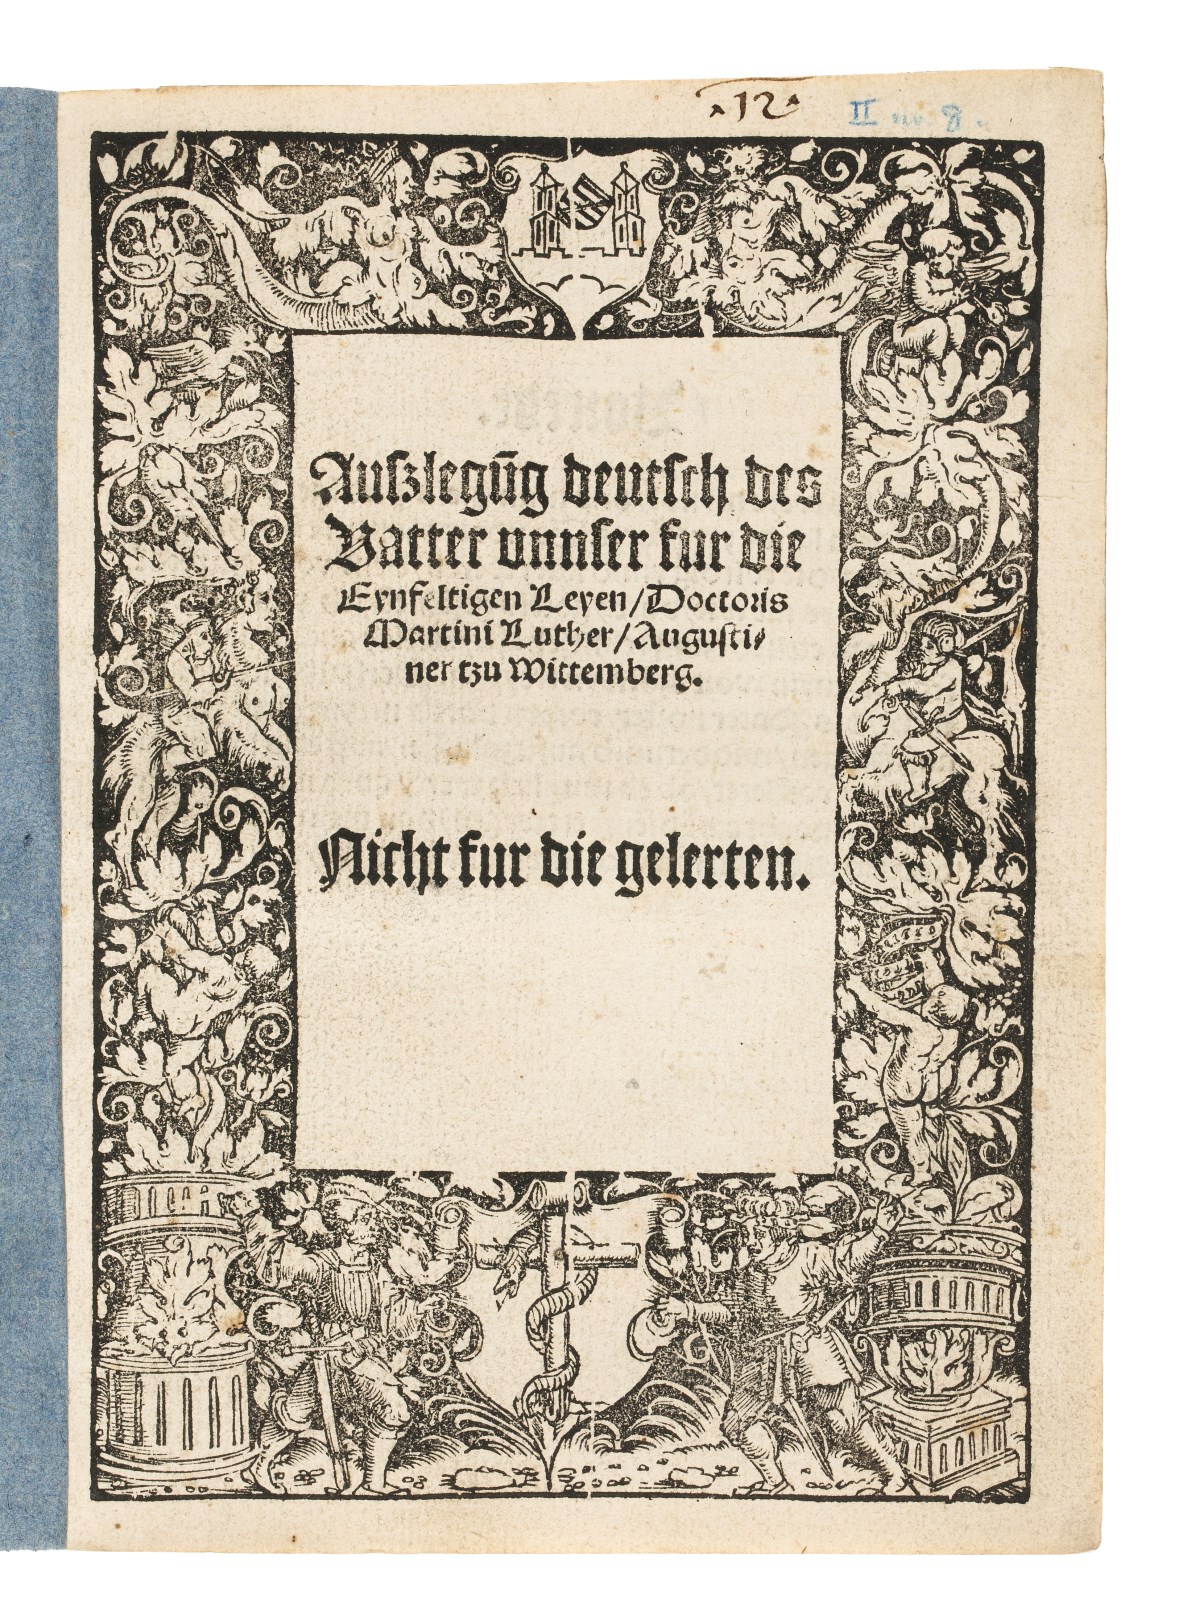 12
II no. 8.
Auſzlegūg deutſch des
Vatter vnnſer fur die
Eynfeltigen Leyen/Doctoris
Martini Luther/Auguſti⸗
ner tzu Wittemberg.
Nicht fur die gelerten.